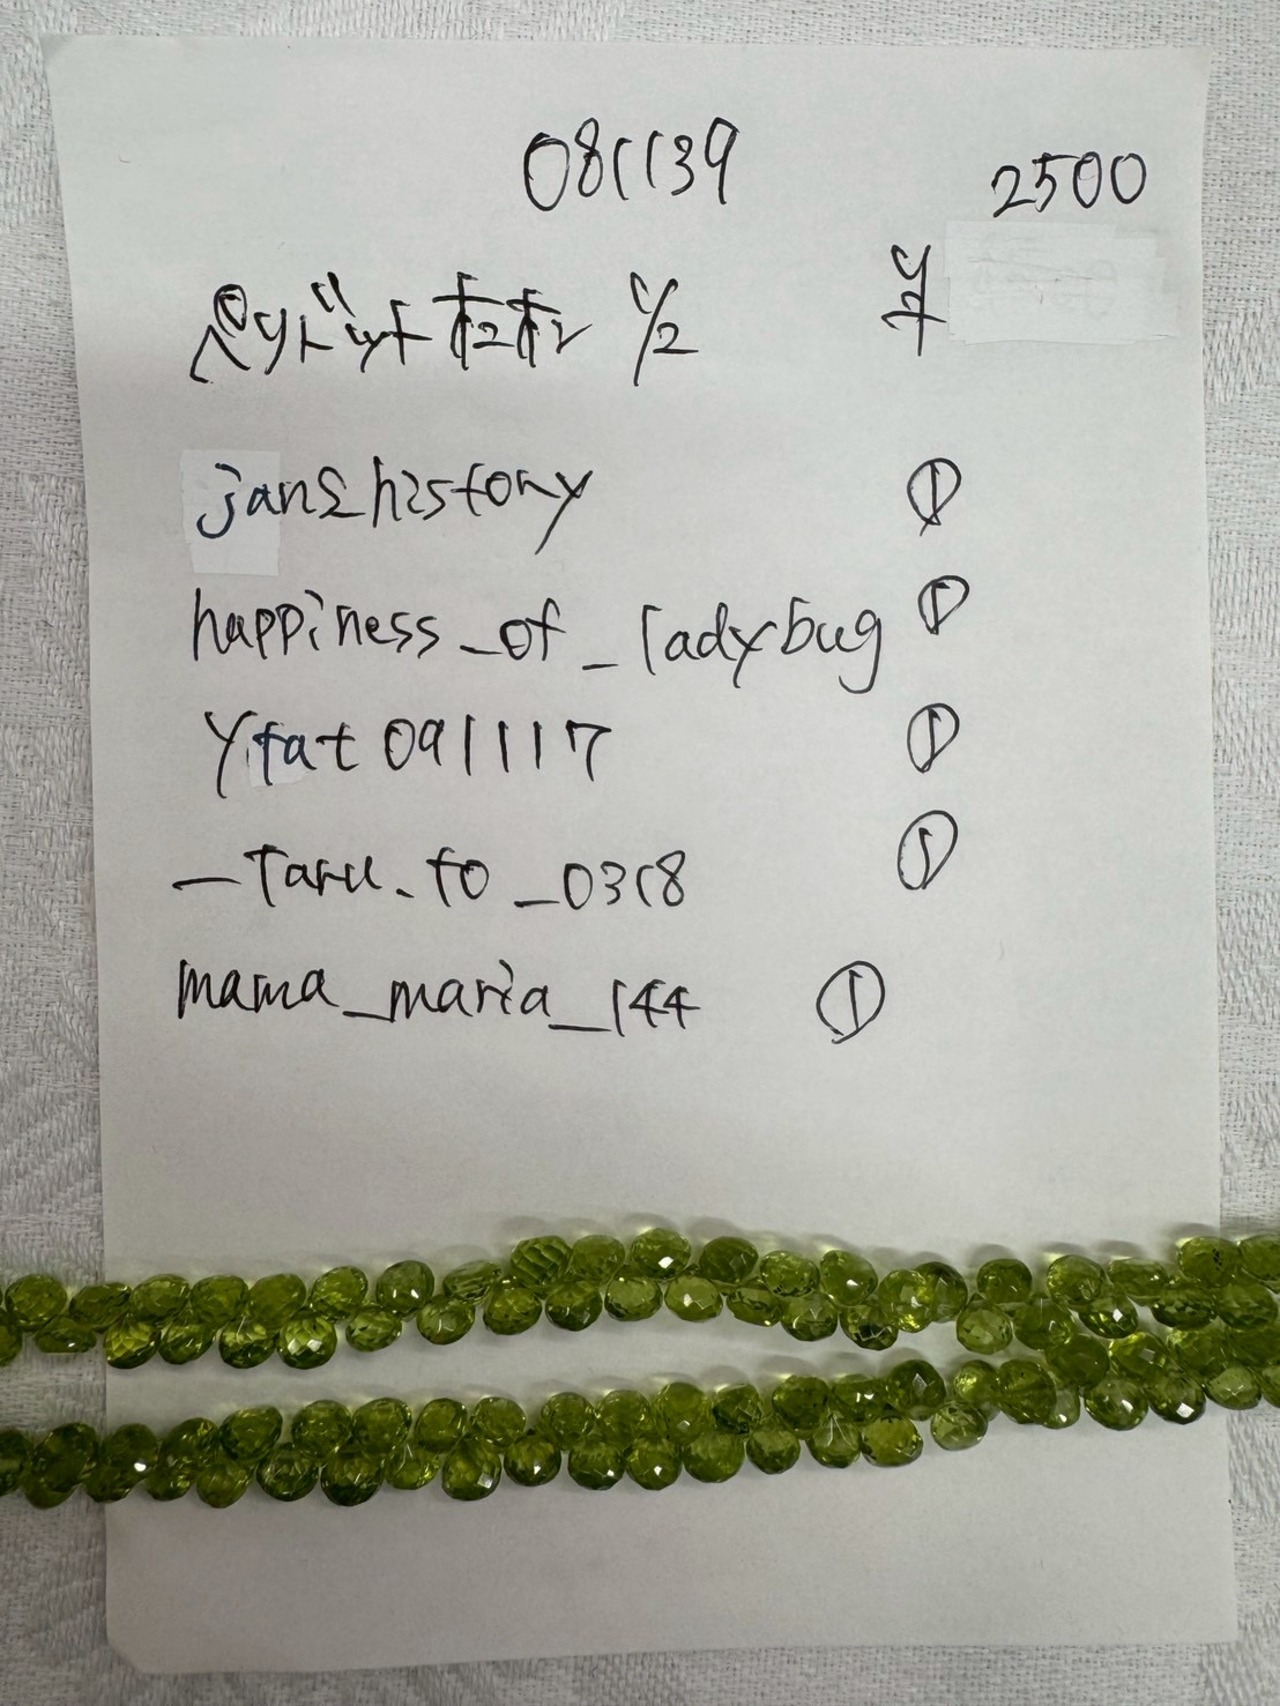 081139 2500
ペリドット 1/2
jan2history ①
happiness_of_ladybug ①
yfat091117 ①
_taru.to_0318 ①
mama_maria_144 ①